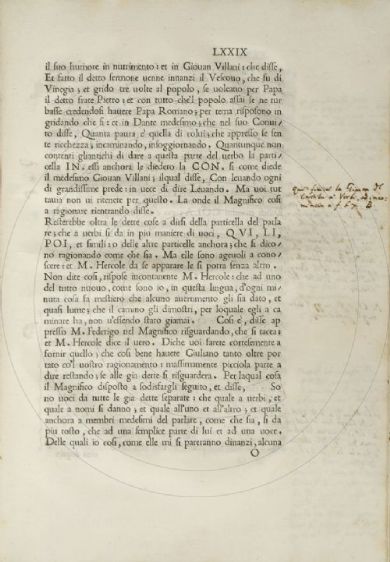 LXXIX
il suo humore in nutrimento: et in Giouan Villani: che disse,
Et fatto il detto sermone uenne innanzi il Vescouo, che fu di
Vinegia; et grido tre uolte al popolo, se uoleano per Papa
il detto frate Pietro: et con tutto che'l popolo assai se ne tur
basse credendosi hauere Papa Romano; per tema risposono in
gridando che si: et in Dante medesimo; che nel suo Conui-
to disse, Quanta paura è quella di colui; che appresso se sen
te ricchezza; in caminando, in soggiornando. Quantunque non
contenti gliantichi di dare a questa parte del uerbo la parti
cella IN. essi anchora le diedero la CON. si come diede
il medesimo Giouan Villani; ilqual disse, Con leuando ogni
di grandissime prede: in uece di dire Leuando. Ma uoi tut
tauia non ui ritenete per questo. La onde il Magnifico cosi
a ragionare rientrando disse.
Resterebbe oltra le dette cose a dirsi della particella del passa
re; che a uerbi si da in piu maniere di uoci, QVI, LI,
POI, et simili: o delle altre particelle anchora; che si dico-
no ragionando come che sia. Ma elle sono ageuoli a cono-
scere: et M. Hercole da se apparare le si potra senza altro.
Non dite cosi, rispose incontanente M. Hercole: che ad uno
del tutto nuouo, come sono io, in questa lingua, d'ogni mi-
nuta cosa fa mestiero che alcuno auertimento gli sia dato, et
quasi lume; che il camino gli dimostri, per loquale egli a ca
minare ha, non u'essendo stato giamai. Cosi è, disse ap
presso M. Federigo nel Magnifico risguardando, che si tacea:
et M. Hercole dice il uero. Diche uoi farete cortesemente a
fornir quello; che cosi bene hauete Giuliano tanto oltre por
tato co'l uostro ragionamento: massimamente picciola parte a
dire restando; se alle gia dette si risguardera. Per laqual cosa
il Magnifico disposto a sodisfargli seguito, et disse, So
no uoci da tutte le gia dette separate: che quale a uerbi, et
quale a nomi si danno; et quale all'uno et all'altro; et quale
anchora a membri medesimi del parlare, come che sia, si da
piu tosto, che ad una semplice parte di lui et ad una uoce.
Delle quali io cosi, come elle mi si pareranno dinanzi, alcuna
O